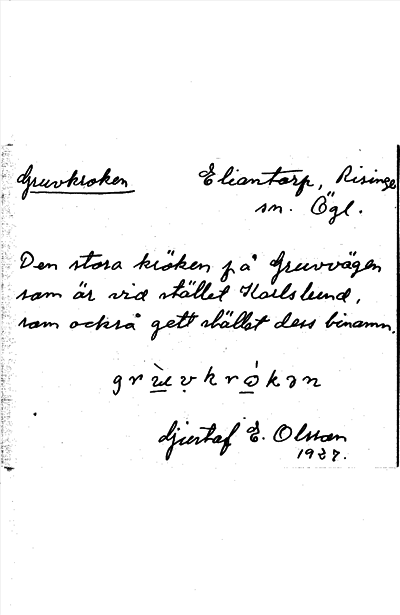 Gruvkroken
Eliantorp, Risinge
sn. Ögl.
Den stora kröken på Gruvvägen
som är vid stället Karlslund,
som också gett stället dess binamn.
grùvkrókən
Gustaf E. Olsson
1937.